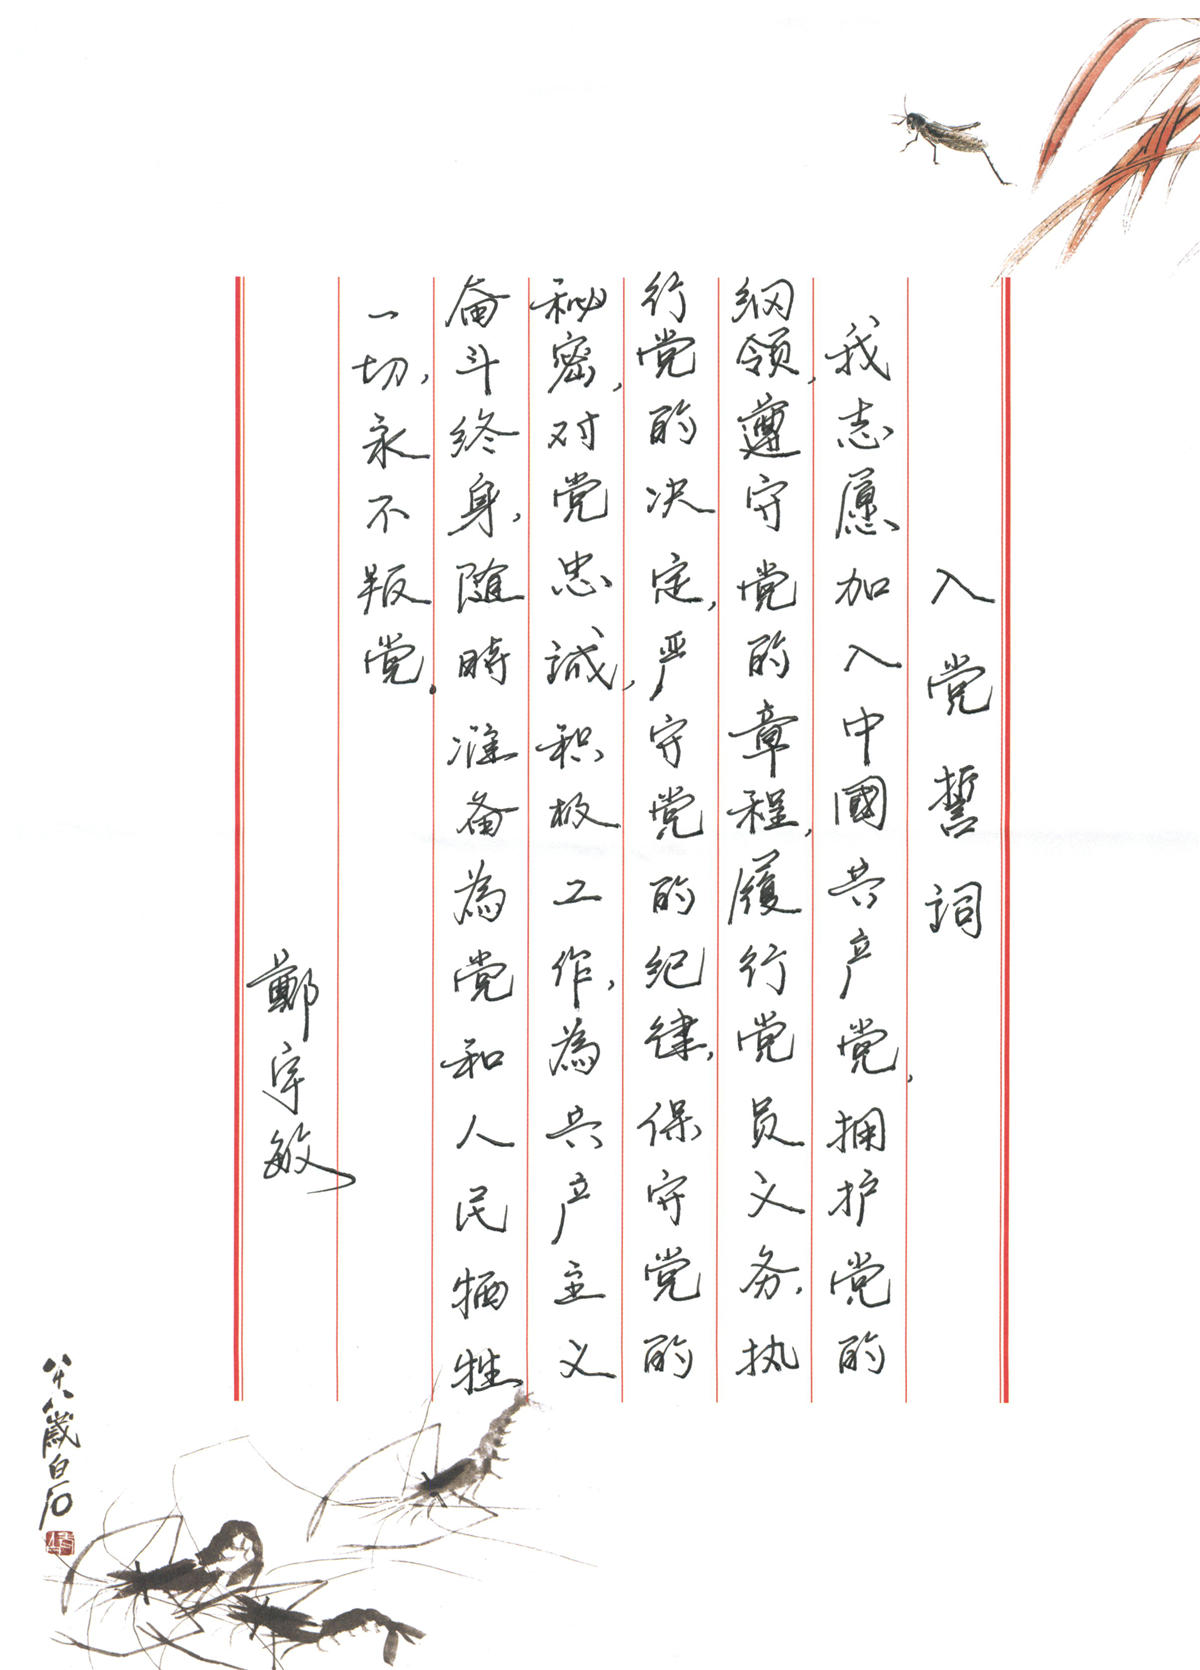 入党誓詞
我志愿加入中國共产党，拥护党的
纲领，遵守党的章程，履行党员义务，执
行党的决定，严守党的纪律，保守党的
秘密，对党忠诚，积极工作，為共产主义
奋斗终身，随時准备為党和人民牺牲
一切，永不叛党。
鄭宇敏
八十八歲白石